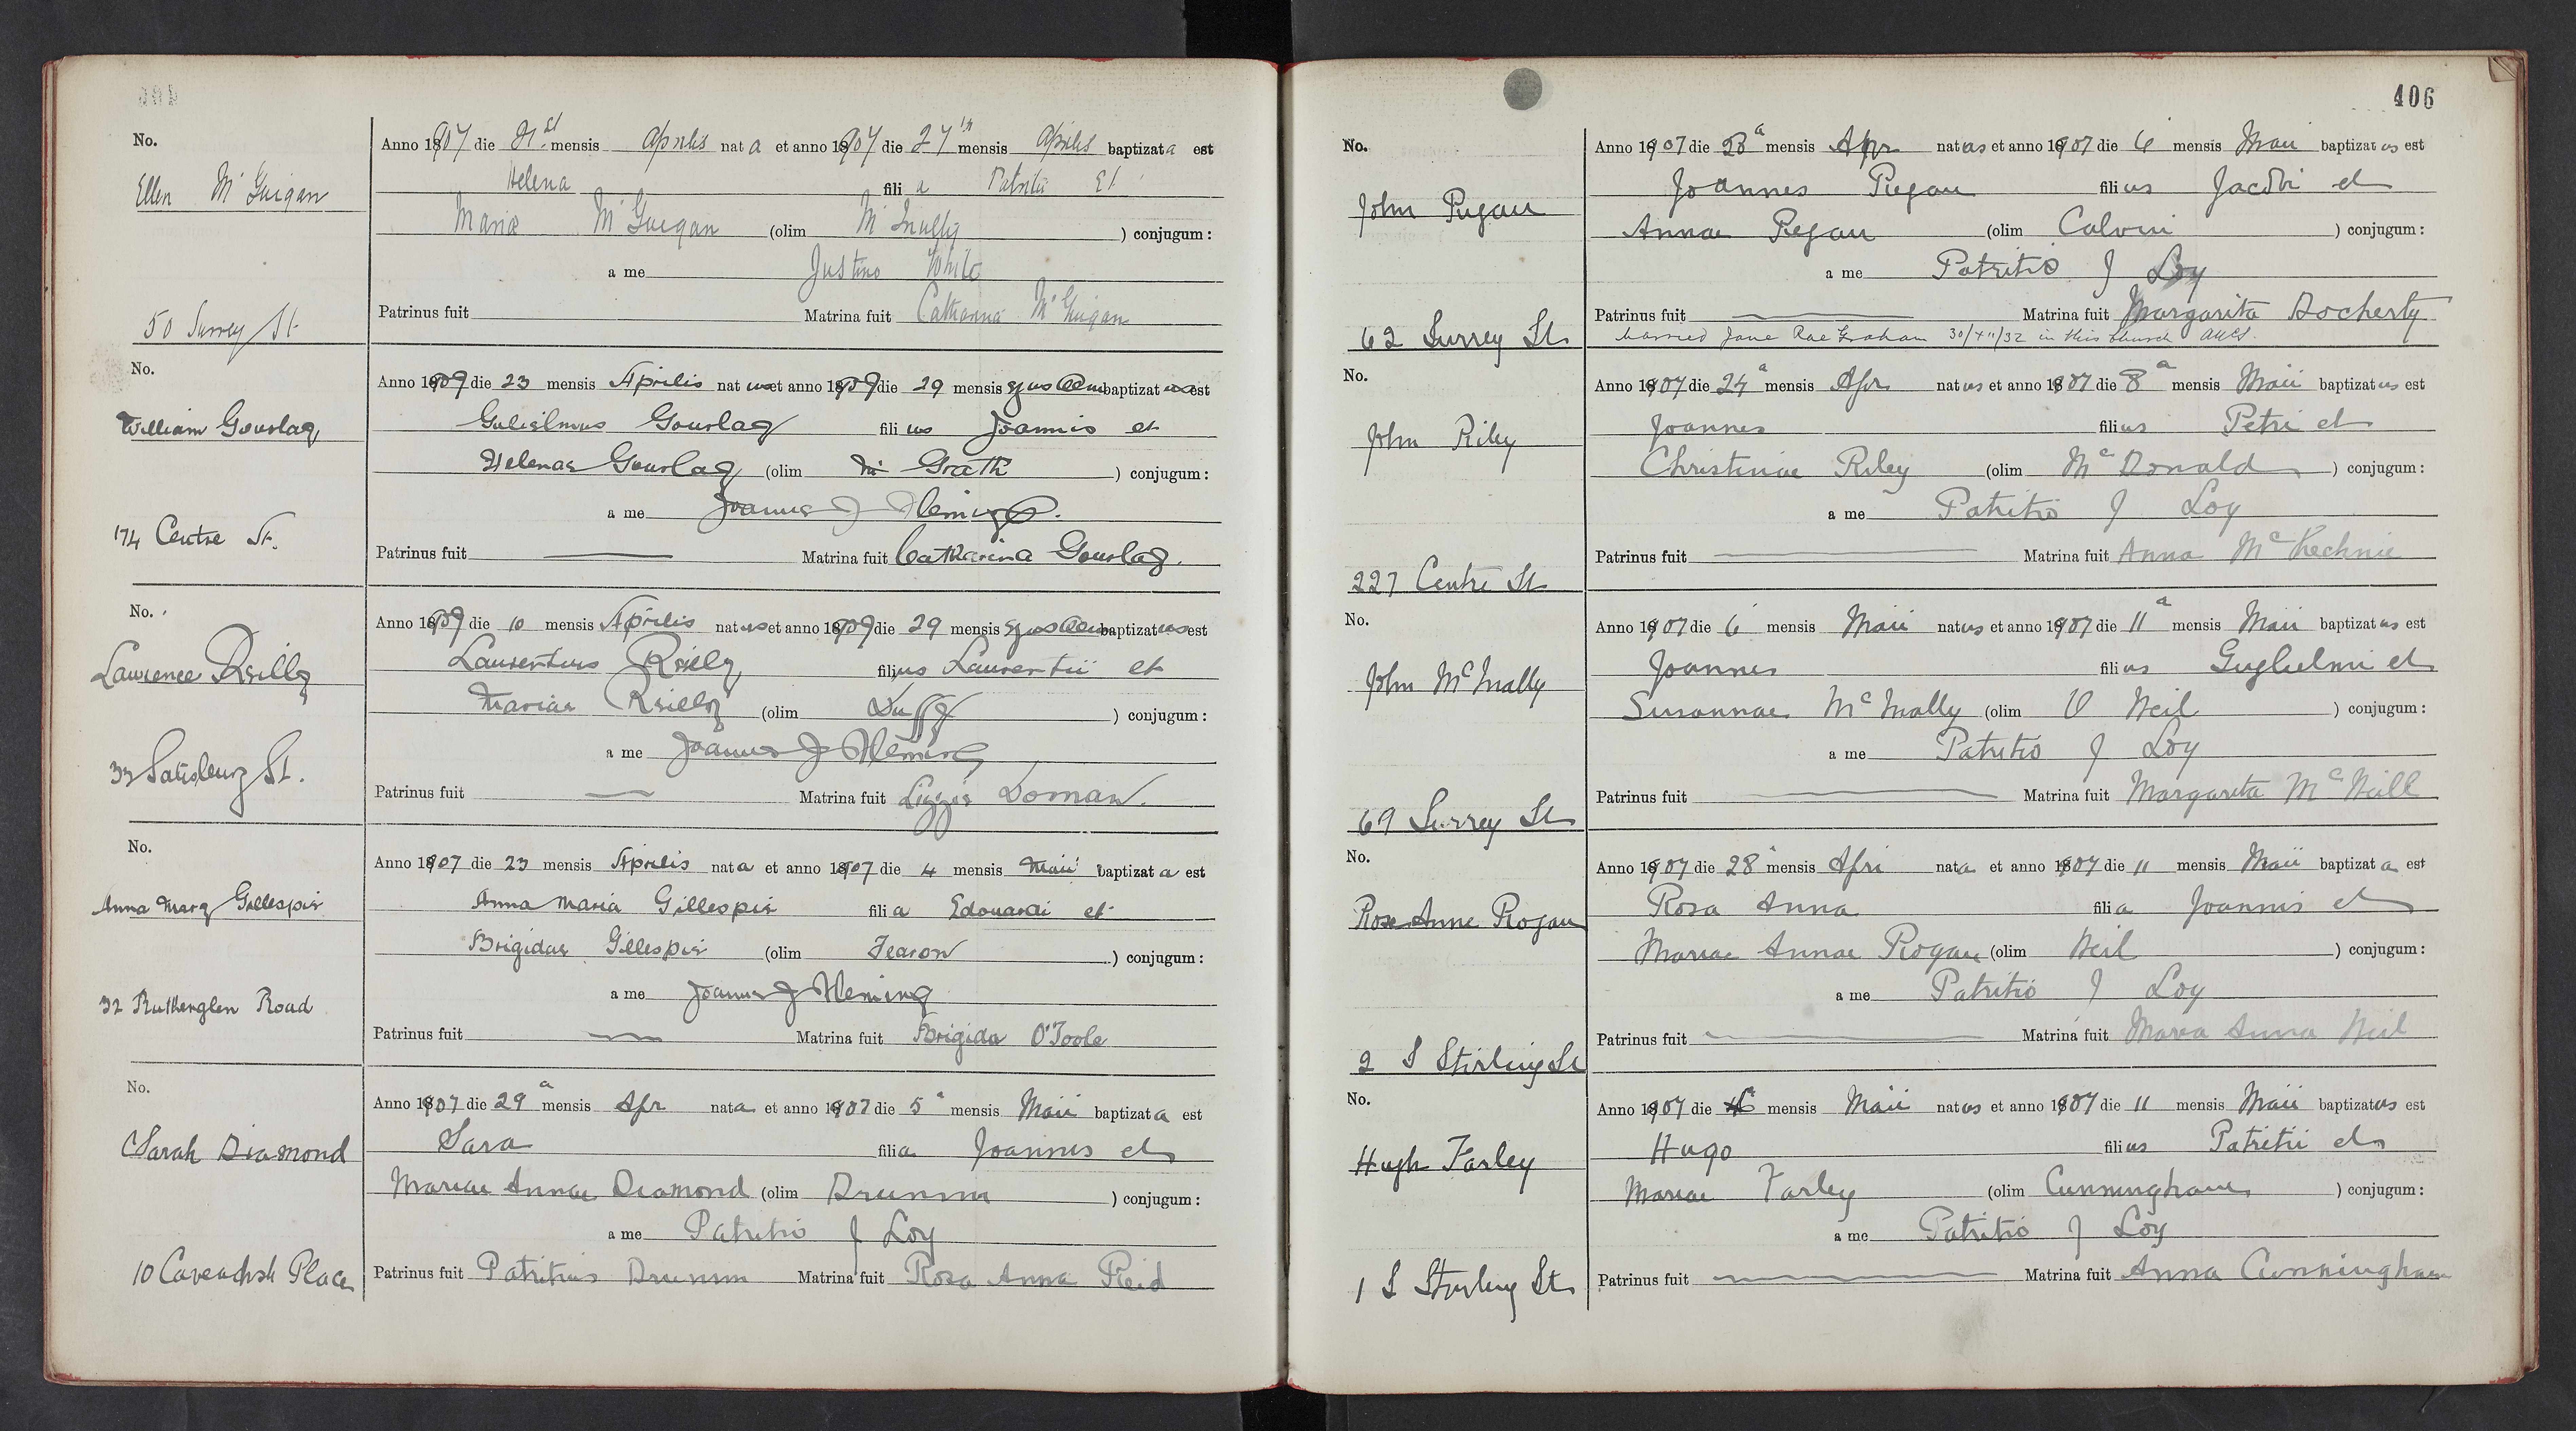 No.
Ellen McGuigan
50 Surrey St
Anno 1907 die 21st mensis Aprilis nata et anno 1907 die 27th mensis Aprilis baptizata est
Helena filia Patritii Et
Maria McGuigan (olim McInulty) conjugum:
a me Justino White
Patrinus fuit Matrina fuit Catharina McGuigan
No.
William Gourlay
174 Centre St.
Anno 1907 die 23 mensis Aprilis natus et anno 1907 die 29 mensis ejusdem baptizatus est
Gulielmus Gourlay filius Joannis et
Helenae Gourlay (olim Mc Grath) conjugum:
a me Joannes J Fleming.
Patrinus fuit — Matrina fuit Catharina Gourlay.
No.
Lawrence Reilly
33 Salisbury St.
Anno 1907 die 10 mensis Aprilis natus et anno 1907 die 29 mensis ejusdem baptizatus est
Laurentius Reilly filius Laurentii et
Mariae Reilly (olim Duffy) conjugum:
a me Joannes J Fleming
Patrinus fuit — Matrina fuit Lizzie Doman.
No.
Anna Mary Gillespie
32 Rutherglen Road
Anno 1907 die 23 mensis Aprilis nata et anno 1907 die 4 mensis Maii baptizata est
Anna Maria Gillespie filia Edouardi et
Brigidae Gillespie (olim Fearon) conjugum:
a me Joannes J Fleming
Patrinus fuit — Matrina fuit Brigida O'Toole
No.
Sarah Diamond
10 Cavendish Place
Anno 1907 die 29a mensis Apr nata et anno 1907 die 5a mensis Maii baptizata est
Sara filia Joannis et
Mariae Annae Diamond (olim Drumm) conjugum:
a me Patritio J Loy
Patrinus fuit Patritius Drumm Matrina fuit Rosa Anna Reid
406
No.
John Regan
62 Surrey St
Anno 1907 die 28a mensis Apr natus et anno 1907 die 6 mensis Maii baptizatus est
Joannes Regan filius Jacobi et
Annae Regan (olim Calvin) conjugum:
a me Patritio J Loy
Patrinus fuit — Matrina fuit Margarita Docherty
Married Jane Rae Graham 30/XII/32 in this church
No.
John Riley
227 Centre St
Anno 1907 die 24a mensis Apr natus et anno 1907 die 8a mensis Maii baptizatus est
Joannes filius Petri et
Christinae Riley (olim McDonald) conjugum:
a me Patritio J Loy
Patrinus fuit — Matrina fuit Anna McKechnie
No.
John McNally
69 Surrey St
Anno 1907 die 6 mensis Maii natus et anno 1907 die 11a mensis Maii baptizatus est
Joannes filius Guglielmi et
Susannae McNally (olim O Neil) conjugum:
a me Patritio J Loy
Patrinus fuit — Matrina fuit Margarita McNeill
No.
Rose Anne Rogan
2 S Stirling St
Anno 1907 die 28a mensis Apri nata et anno 1907 die 11 mensis Maii baptizata est
Rosa Anna filia Joannis et
Mariae Annae Rogan (olim Neil) conjugum:
a me Patritio J Loy
Patrinus fuit — Matrina fuit Maria Anna Neil
No.
Hugh Farley
1 S Stirling St
Anno 1907 die mensis Maii natus et anno 1907 die 11 mensis Maii baptizatus est
Hugo filius Patritii et
Mariae Farley (olim Cunningham) conjugum:
a me Patritio J Loy
Patrinus fuit — Matrina fuit Anna Cunningham